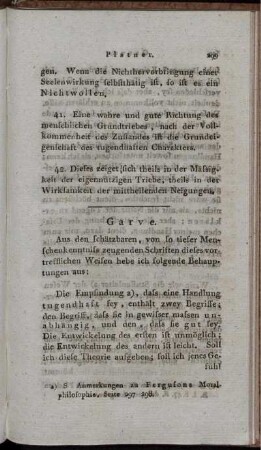 Platner.
gen. Wenn die Nichthervorbringung einer
Seelenwirkung selbstthätig ist, so ist es ein
Nichtwollen.
41. Eine wahre und gute Richtung des
menschlichen Grundtriebes, nach der Voll-
kommenheit des Zustandes ist die Grundei-
genschaft des tugendhaften Charakters.
42. Dieses zeiget sich theils in der Mäßig-
keit der eigennützigen Triebe, theils in der
Wirksamkeit der mittheilenden Neigungen.
Garve.
Aus den schätzbaren, von so tiefer Men-
schenkenntniß zeugenden Schriften dieses vor-
trefflichen Weisen hebe ich folgende Behaup-
tungen aus:
Die Empfindung a), dass eine Handlung
tugendhaft sey, enthält zwey Begriffe;
den Begriff, dass sie in gewisser massen un-
abhängig, und den, dass sie gut sey.
Die Entwickelung des ersten ist unmöglich;
die Entwickelung des andern ist leicht. Soll
ich diese Theorie aufgeben; soll ich jenes Ge-
fühl
a) S. Anmerkungen zu Fergusons Moral-
philosophie, Seite 297 298.